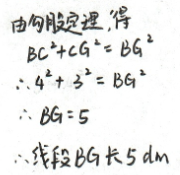 由勾股定理,得
BC²+CG²=BG²
∴4²+3²=BG²
∴BG=5
∴线段BG长5dm